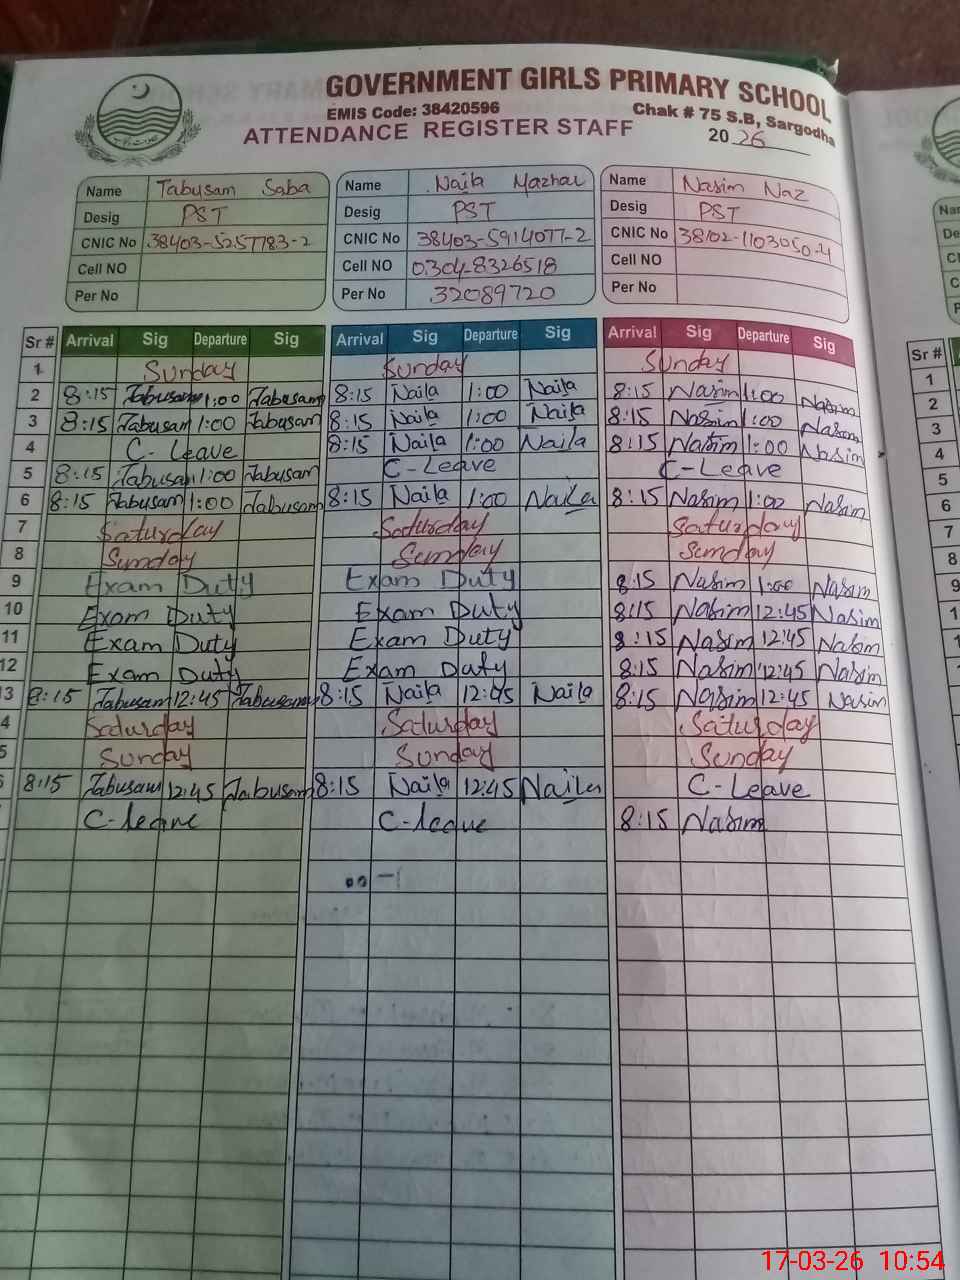 GOVERNMENT GIRLS PRIMARY SCHOOL
EMIS Code: 38420596 Chak # 75 S.B, Sargodha
ATTENDANCE REGISTER STAFF 2026
Name Tabusam Saba Name Naila Mazhar Name Nasim Naz
Desig PST Desig PST Desig PST
CNIC No 38403-5257783-2 CNIC No 38403-5914077-2 CNIC No 38102-1103050-4
Cell NO Cell NO 0304-8326518 Cell NO
Per No Per No 32089720 Per No
Sr # Arrival Sig Departure Sig Arrival Sig Departure Sig Arrival Sig Departure Sig Sr #
1 Sunday Sunday Sunday 1
2 8:15 Tabusam 1:00 Tabusam 8:15 Naila 1:00 Naila 8:15 Nasim 1:00 Nasim 2
3 8:15 Tabusam 1:00 Tabusam 8:15 Naila 1:00 Naila 8:15 Nasim 1:00 Nasim 3
4 C-Leave 8:15 Naila 1:00 Naila 8:15 Nasim 1:00 Nasim 4
5 8:15 Tabusam 1:00 Tabusam C-Leave C-Leave 5
6 8:15 Tabusam 1:00 Tabusam 8:15 Naila 1:00 Naila 8:15 Nasim 1:00 Nasim 6
7 Saturday Saturday Saturday 7
8 Sunday Sunday Sunday 8
9 Exam Duty Exam Duty 8:15 Nasim 1:00 Nasim 9
10 Exam Duty Exam Duty 8:15 Nasim 12:45 Nasim 1
11 Exam Duty Exam Duty 8:15 Nasim 12:45 Nasim 1
12 Exam Duty Exam Duty 8:15 Nasim 12:45 Nasim 1
3 8:15 Tabusam 12:45 Tabusam 8:15 Naila 12:45 Naila 8:15 Nasim 12:45 Nasim
4 Saturday Saturday Saturday
5 Sunday Sunday Sunday
6 8:15 Tabusam 12:45 Tabusam 8:15 Naila 12:45 Naila C-Leave
C-leave C-leave 8:15 Nasim
17-03-26 10:54